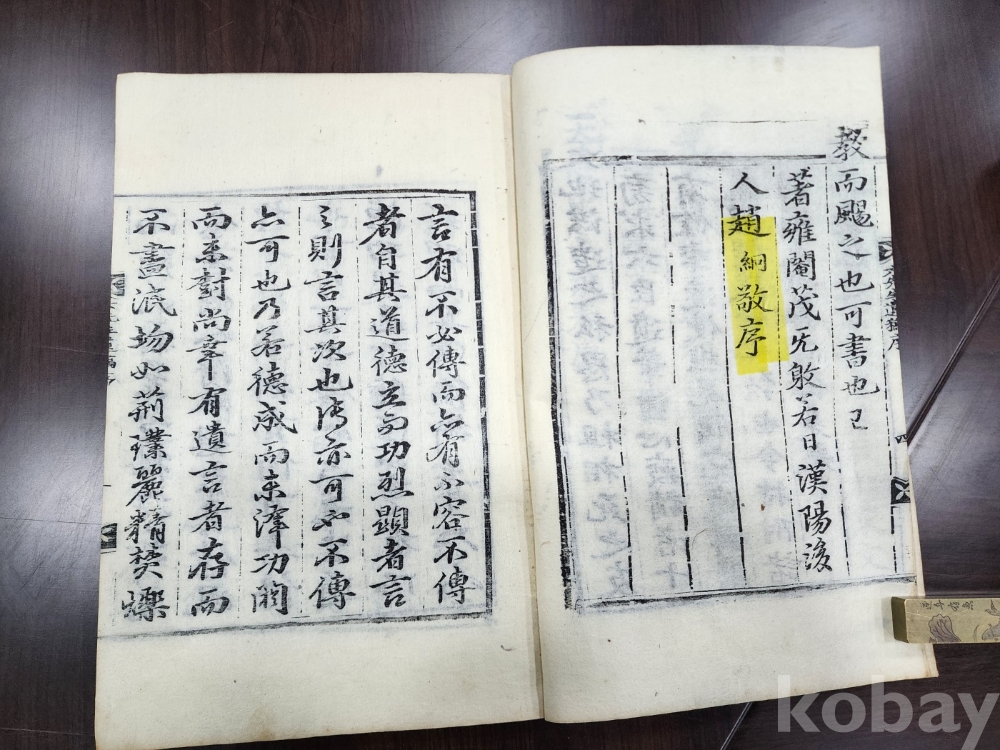 敎而颺之也可書也已
著雍閹茂无射若日漢陽後
人趙絅敬序
言有不必傳而亦有不容不傳
者自其道德立而功烈顯者言
之則言其次也傳亦可也不傳
亦可也乃若德成而未澤功閎
而未封尚幸有遺言者存而
不盡泯場如荊璞麗精焚爍
四
kobay